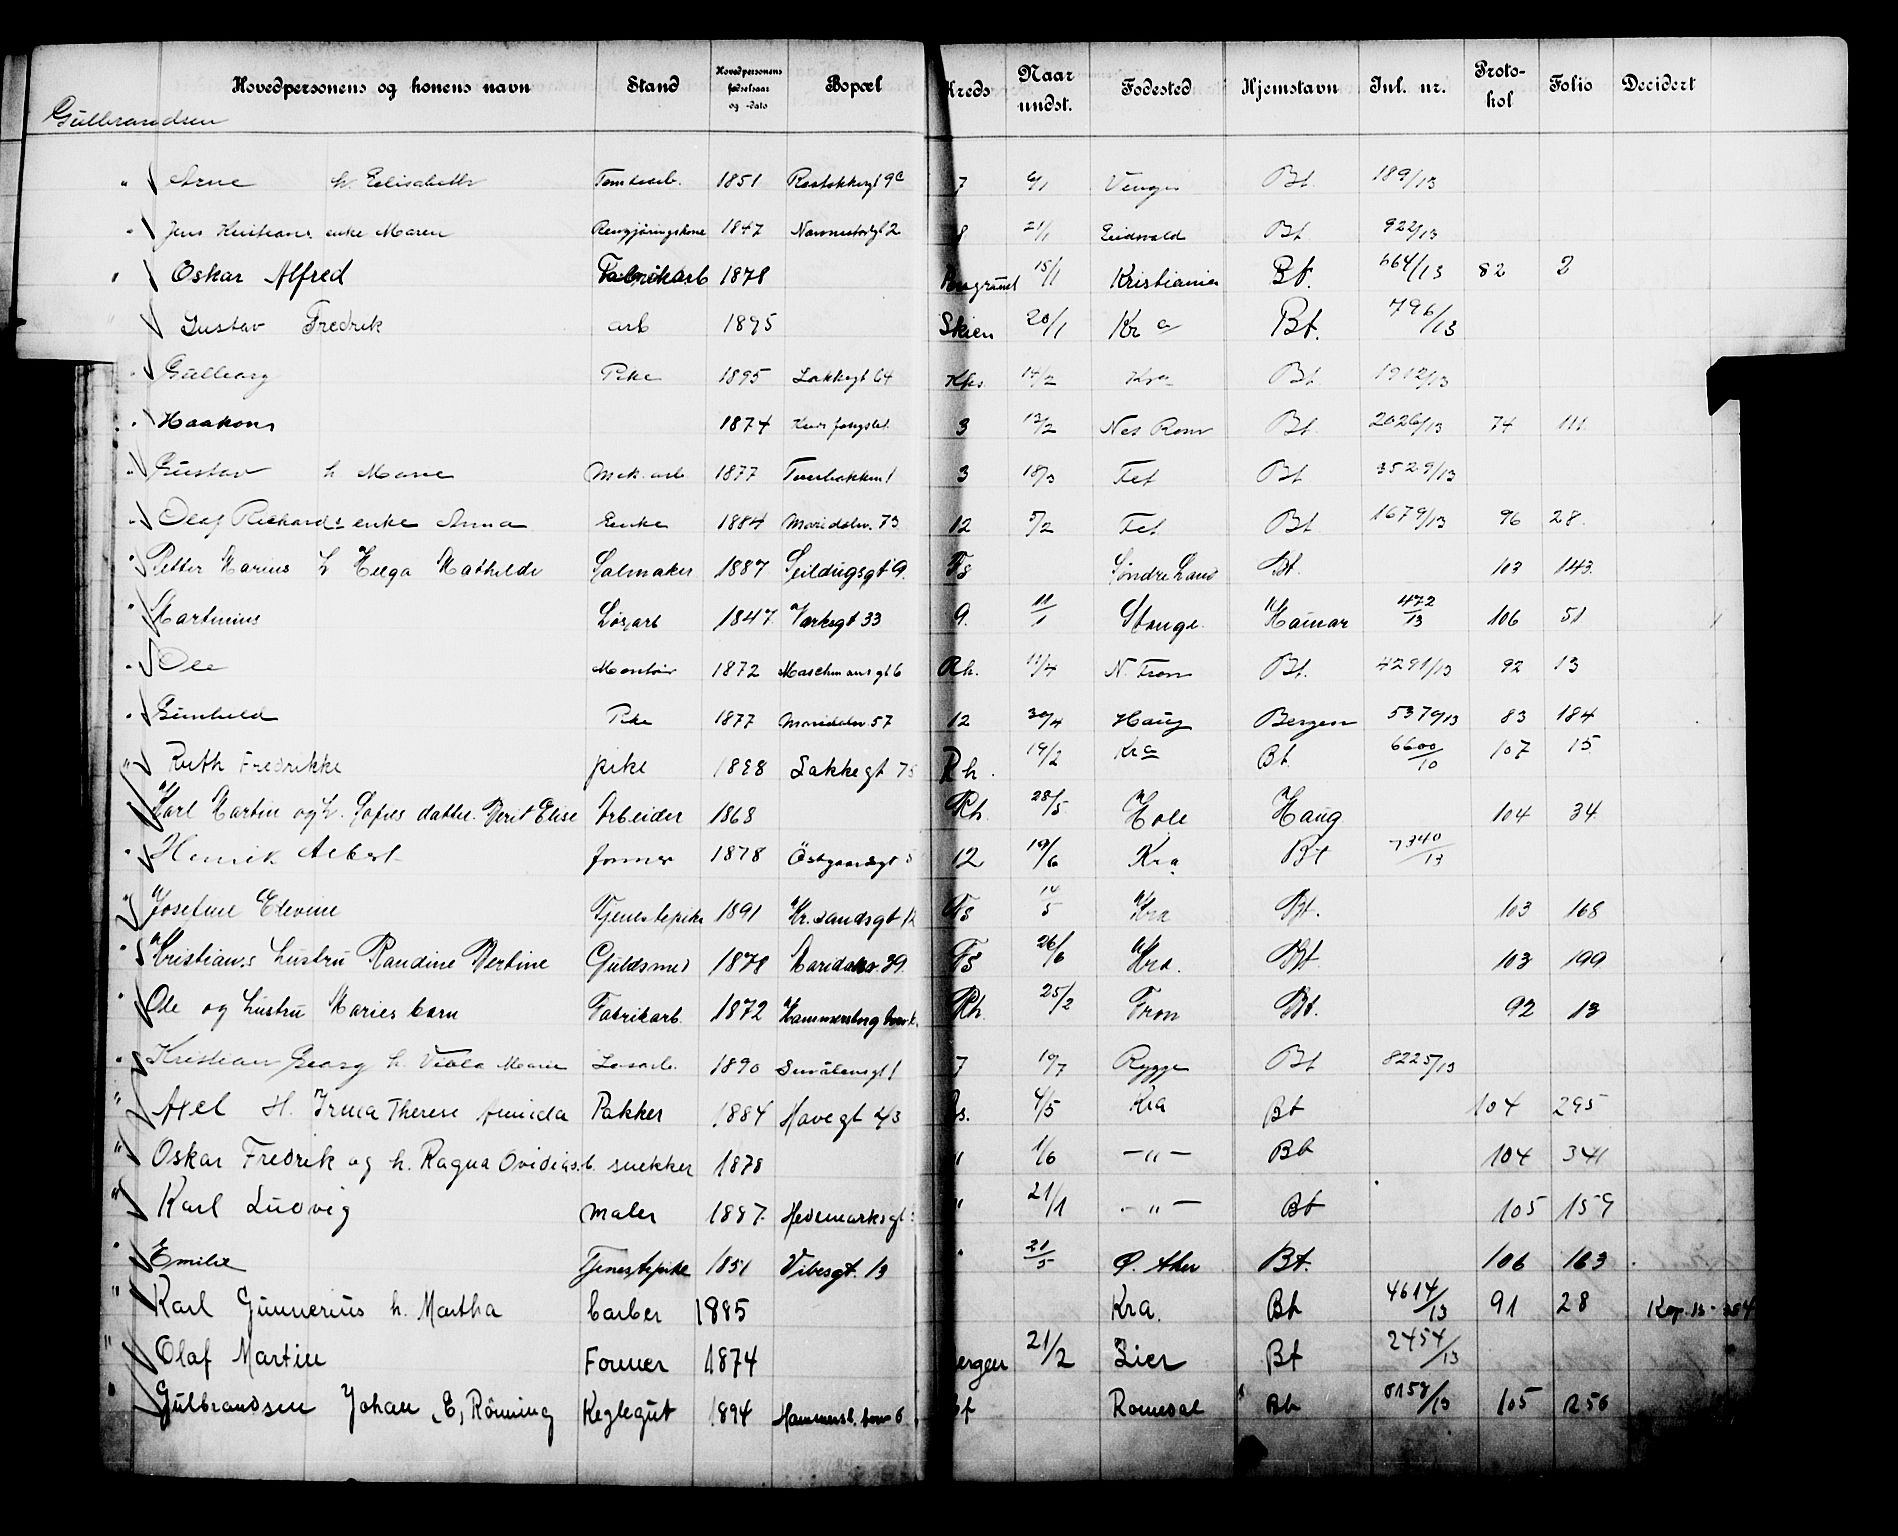 Hovedpersonens og konens navn Stand Hovedpersonens fødselsaar og -dato Bopæl Kreds Naar undst. Fødested Hjemstavn Jnl. nr. Protokol Folio Decidert
Gulbrandsen
" Arne h. Elisabeth 1851 9c 7 6/1 Bt 189/13
" Jens Kristians enke Maren Rengjøringskone 1847 8 21/1 Eidsvold Bt 922/13
" Oskar Alfred Fabrikarb 1878 15/1 Kristiania Bt. 664/13 82 2
" Gustav Fredrik arb 1895 Skien 20/1 Kra Bt. 796/13
" Gulborg Pike 1895 Lakkegt 64 Kfs. 14/2 Kra Bt 1912/13
" Haakon 1874 3 13/2 Nes Rom Bt. 2026/13 74 111
" Gustav h Marie Mek. arb 1877 3 18/3 Fet Bt 3529/13
" Olaf Richards enke Anna Enke 1884 Maridalsv. 73 12 5/2 Fet Bt 1679/13 96 28.
" Petter Marius h Helga Mathilde Salmaker 1887 Seildugsgt 9. Fs Søndre Land Bt. 103 143.
" Martinius Løsarb 1847 Verksgt 33 9. 11/1 Stange Hamar 472/13 106 51
" Ole Montør 1872 Maschmansgt 6 Rh. 11/4 N. Fron Bt. 4291/13 92 13
" Gunhild Pike 1877 Maridalsv 57 12 30/4 Haug Bergen 5379/13 83 184
" Ruth Fredrikke pike 1898 Lakkegt 75 Rh. 19/2 Kra Bt. 6600/10 107 15
" Karl Martin og h. Sofies datter Berit Elise Arbeider 1868 Rh. 28/5 Hole Haug 104 34
" Henrik Albert former 1878 Østgaardsgt 5 12 19/6 Kra Bt 7340/13
" Josefine Edevine Tjenestepike 1891 Kr.sandsgt 12 Fs 14/5 Kra Bt. 103 168
" Kristians hustru Randine Bertine Guldsmed 1878 Maridalsv. 39 Fs 26/6 Kra. Bt. 103 199
" Ole og hustru Maries barn Fabrikarb. 1872 Hammersborg Rh. 25/2 Fron Bt. 92 13
" Kristian Georg h. Viola Marie Løsarb. 1890 7 19/7 Rygge Bt 8225/13
" Axel H. Irma Therese Amanda Pakker 1884 Havegt 4/3 4/5 Kra Bt 104 295
" Oskar Fredrik og h. Ragna Ovidia snekker 1878 " 1/6 —"— Bt 104 341
" Karl Ludvig Maler 1887. Hedemarksgt " 21/1 —"— Bt 105 159
" Emilie Tjenestepike 1851 Vibesgt. 13 " 21/5 Ø. Aker Bt. 106 163
" Karl Gunnerius h. Martha barber 1885 Kra. Bt 4614/13 91 28 Kop. 12
" Olaf Martin Former 1874 ergen 21/2 Lier Bt 2454/13
" Gulbrandsen Johan E, Rönning Keglegut 1894 Romsdal Bt 8158/13 105 256